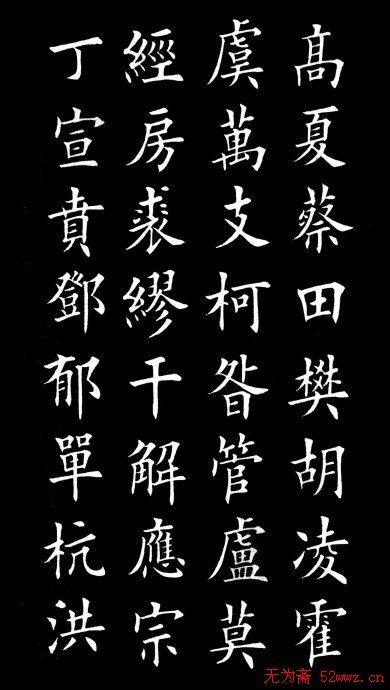 高夏蔡田樊胡凌霍
虞萬支柯昝管盧莫
經房裘繆干解應宗
丁宣賁鄧郁單杭洪
无为斋 52wwz.cn